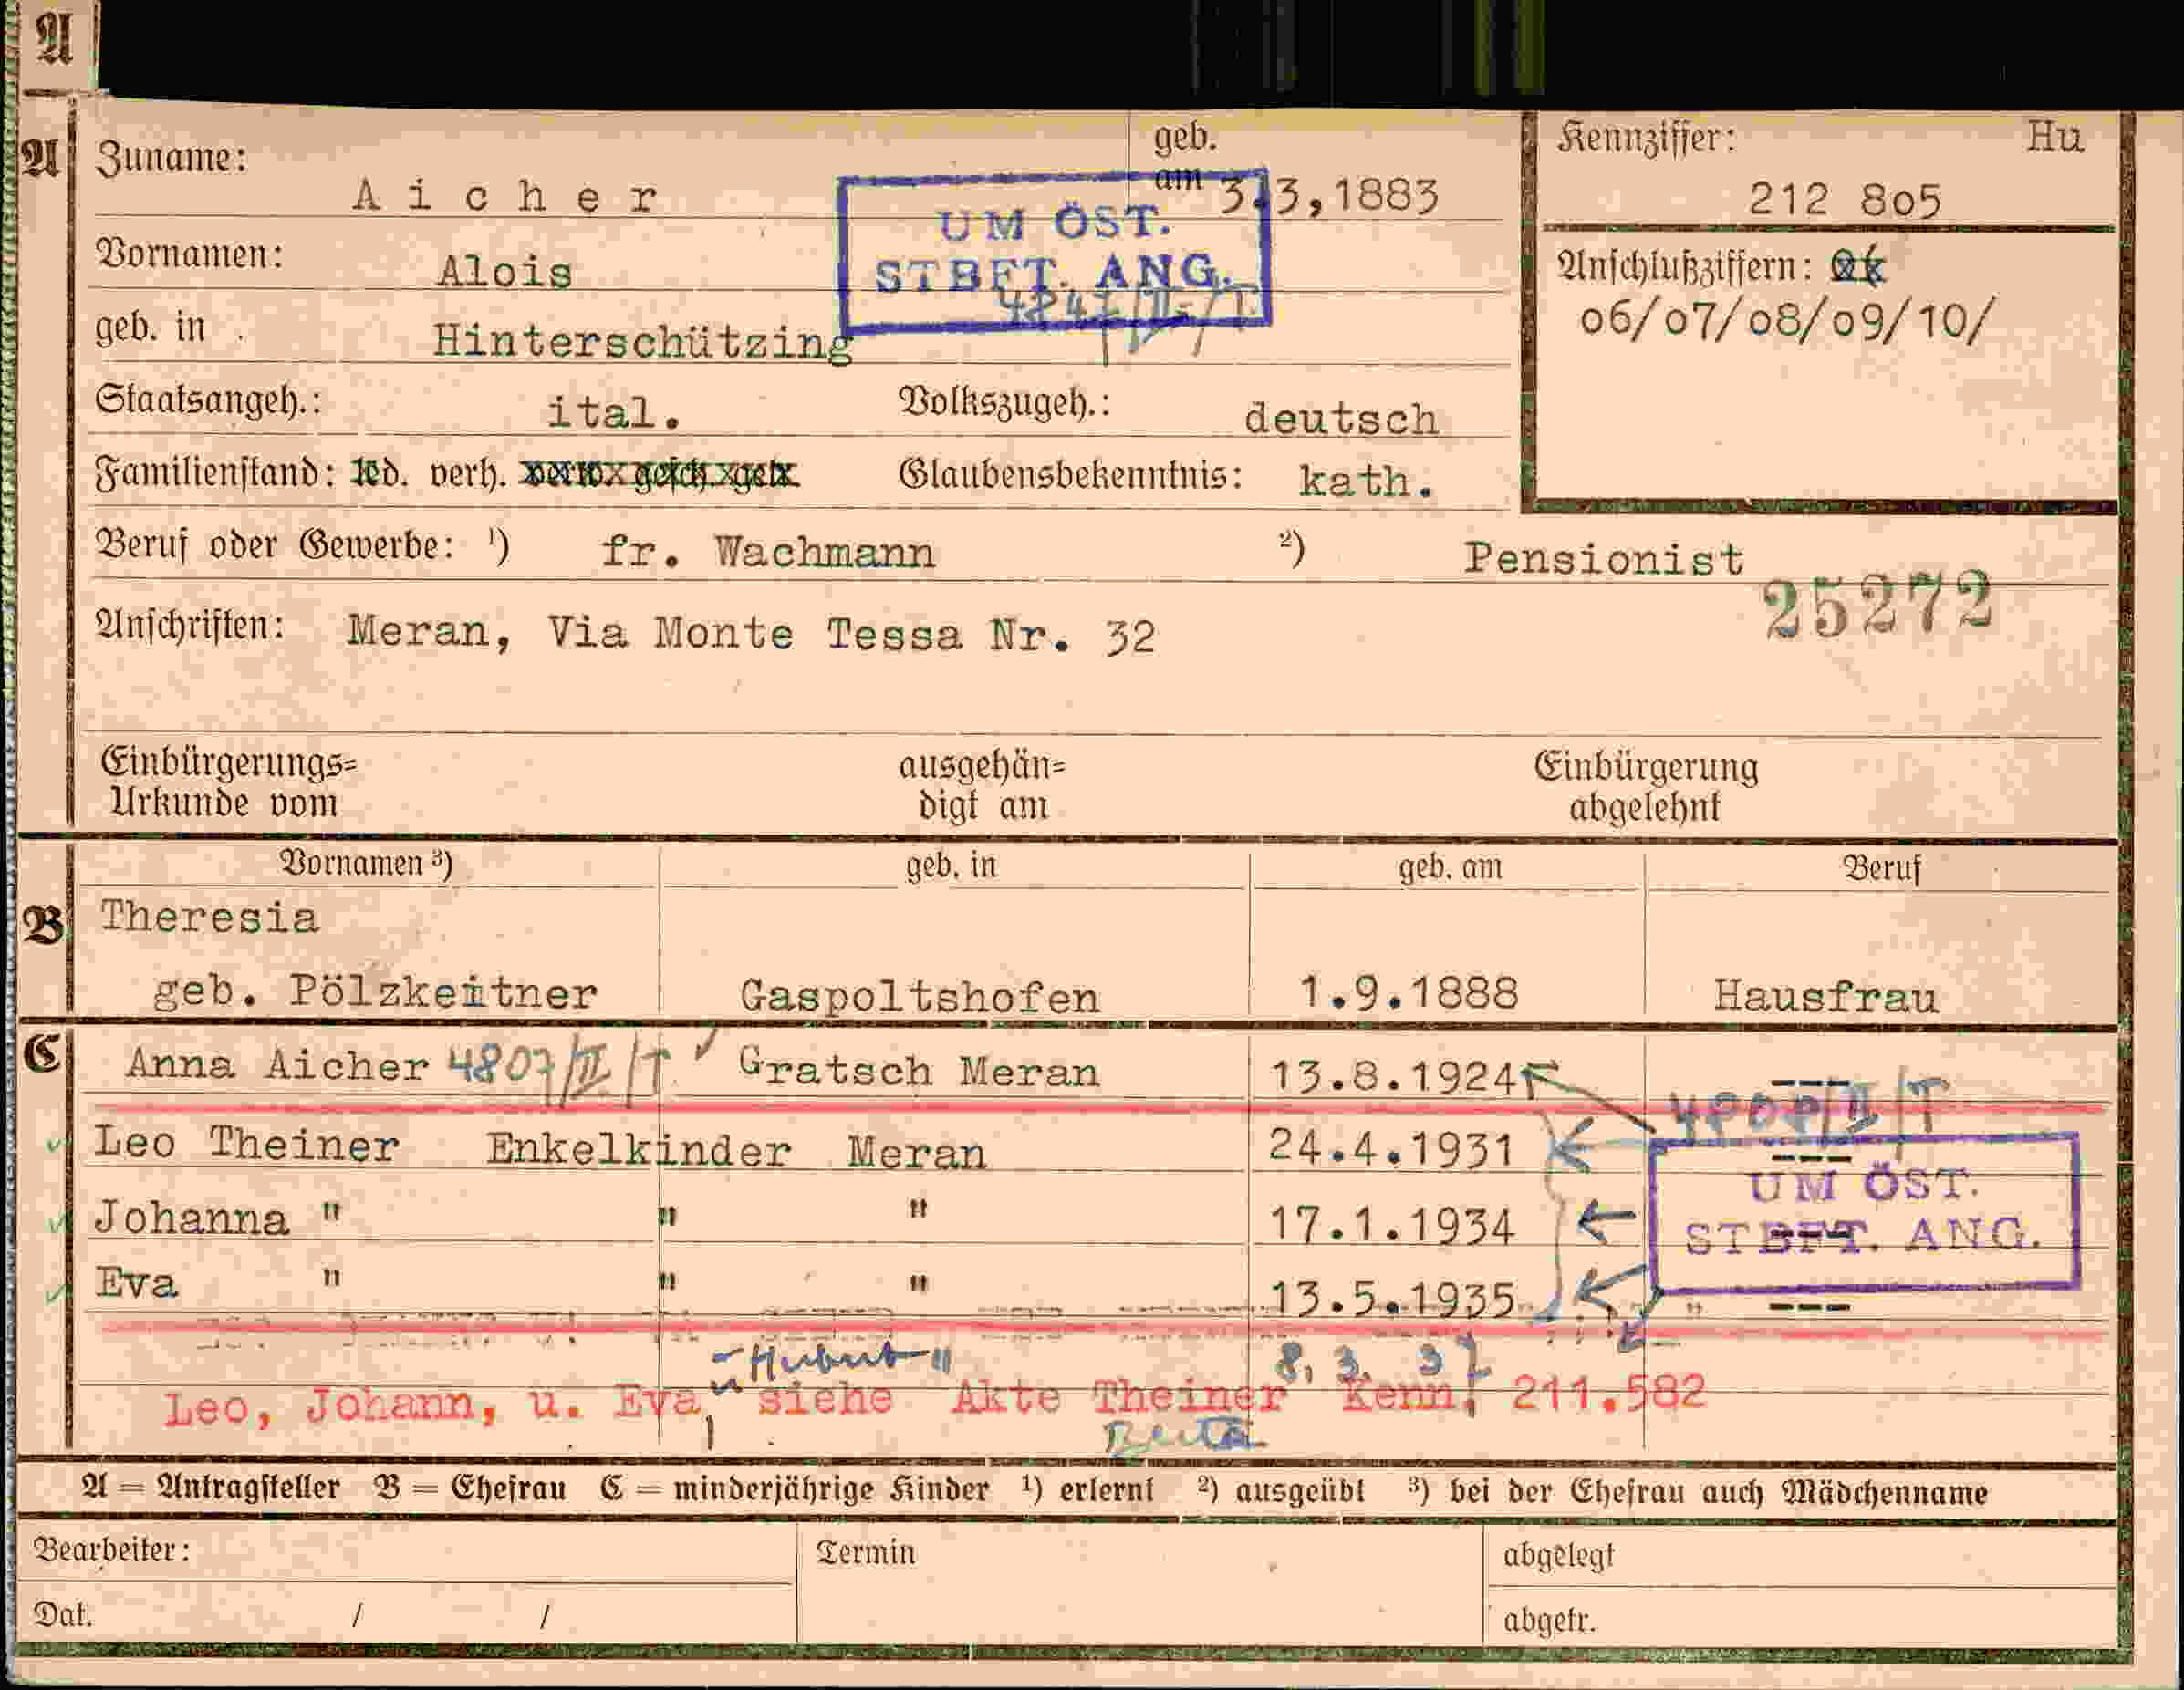 A
A
Zuname: Aicher geb. am 3.3,1883
Kennziffer: Hu
212 805
UM ÖST.
STBFT. ANG.
Vornamen: Alois
Anschlußziffern:
06/07/08/09/10/
geb. in Hinterschützing
Staatsangeh.: ital. Volkszugeh.: deutsch
Familienstand: led. verh. verw. gesch. get. Glaubensbekenntnis: kath.
Beruf oder Gewerbe: 1) fr. Wachmann 2) Pensionist
25272
Anschriften: Meran, Via Monte Tessa Nr. 32
Einbürgerungs= Urkunde vom
ausgehän= digt am
Einbürgerung abgelehnt
Vornamen 3) geb. in geb. am Beruf
B Theresia
geb. Pölzkeitner Gaspoltshofen 1.9.1888 Hausfrau
C Anna Aicher 4807/II/T Gratsch Meran 13.8.1924 ---
Leo Theiner Enkelkinder Meran 24.4.1931 ---
Johanna " " " 17.1.1934
UM ÖST.
STBFT. ANG.
Eva " " " 13.5.1935 " ---
"Hubert" 8. 3. 37
Leo, Johann, u. Eva, siehe Akte Theiner Kenn. 211.582
A = Antragsteller B = Ehefrau C = minderjährige Kinder 1) erlernt 2) ausgeübt 3) bei der Ehefrau auch Mädchenname
Bearbeiter: Termin abgelegt
Dat. / / abgetr.